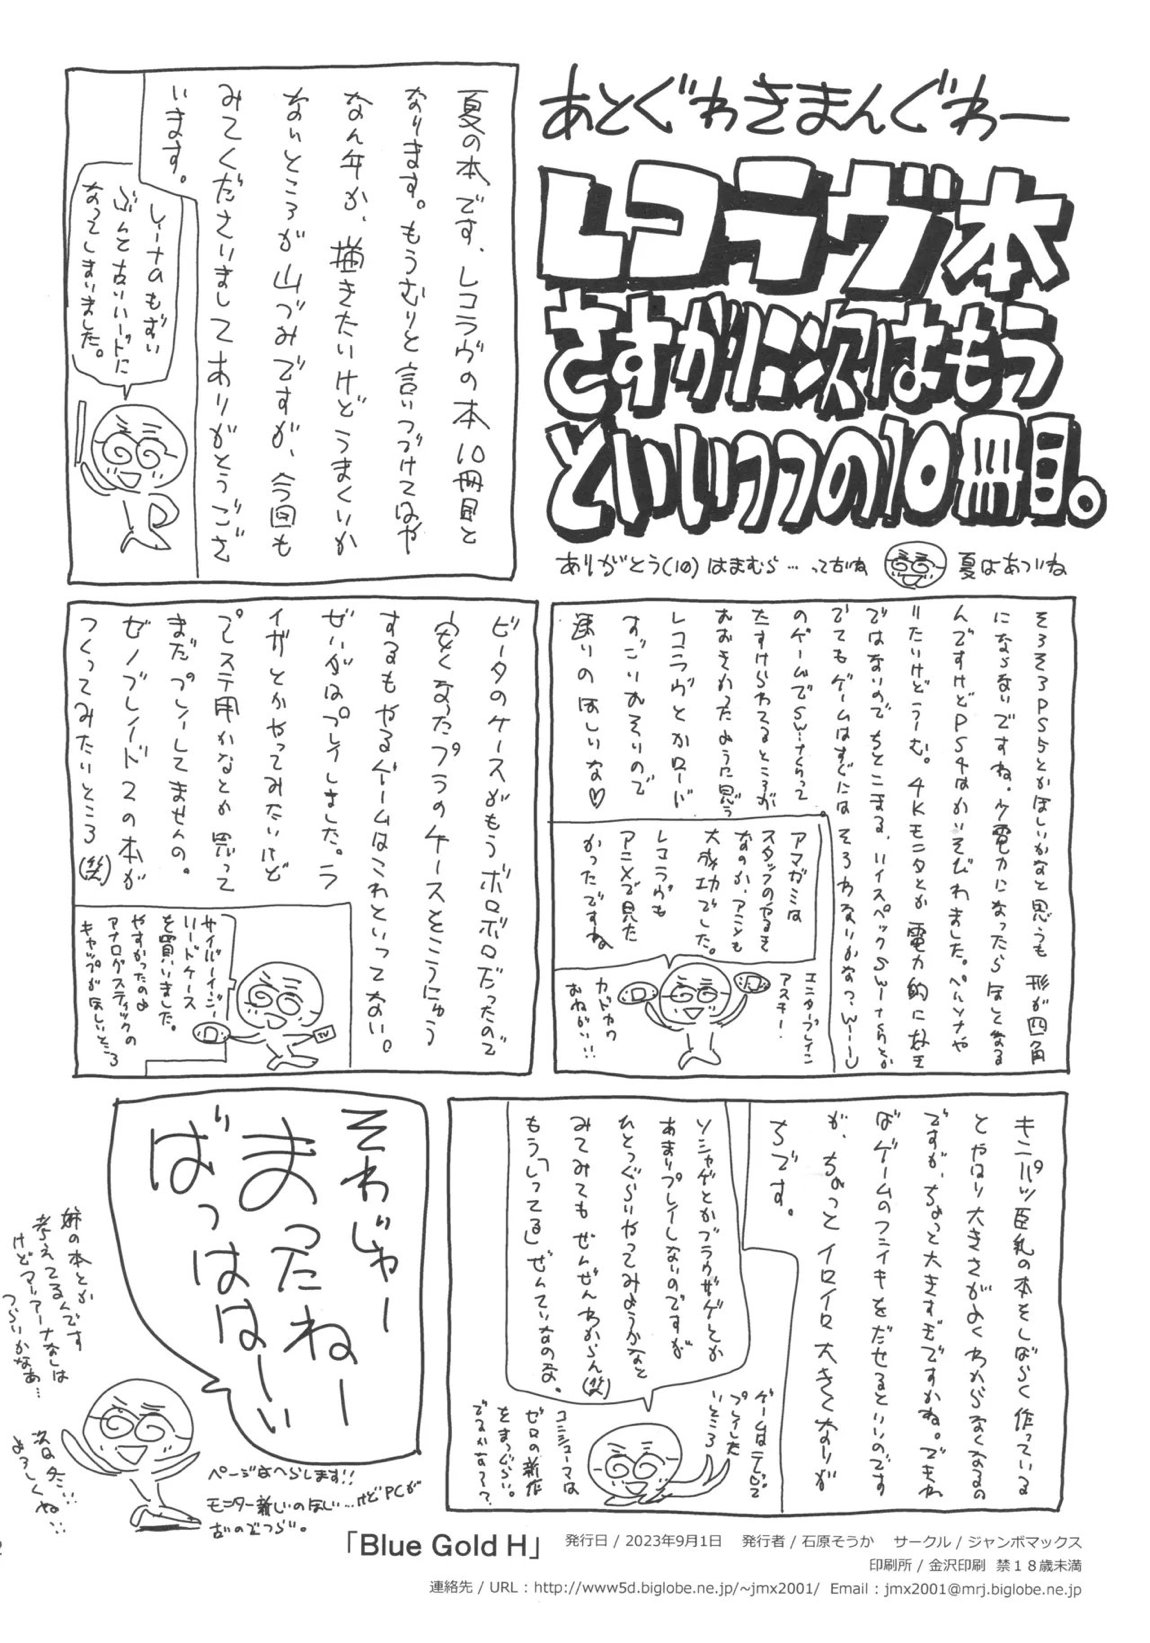 あとぐわきまんぐわー
レコラヴ本
さすがに次はもう
といいつつの10冊目。
ありがとう(10)はまむら…って古いね
夏はあついね
夏の本です、レコラヴの本10冊目と
なります。もうむりと言いつづけてはや
なん年か、描きたいけどうまくいか
ないところが山づみですが、今回も
みてくださいましてありがとうござ
います。
なってしまいました。
そろそろPS5とかほしいかなと思うも形が四角
にならないですね。
ではないので
でてもゲームはすぐには
のゲームで
たすけられてるところが
おおきかったように思う
レコラヴとかロード
すごいおそいので
速りのほしいな♡
アマガミは
スタッフのやるき
なのか、アニメも
大成功でした。
レコラヴも
アニメで見た
かったですね
エンターブレイン
アスキー!
カドカワ
おねがい!!
ビータのケースがもうボロボロだったので
安くなったプラのケースをこうにゅう
するもやるゲームはこれといってない。
ぜいがはプレイしました。ラ
イザとかやってみたいけど
プレステ用かなとか思って
まだプレーしてませんの。
ゼノブレイド2の本が
つくってみたいところ(笑)
サイバーイジ
リードケース
を買いました。
やすかったのよ
アナログスティックの
キャップがほしいところ
キンパツ巨乳の本をしばらく作っている
とやはり大きさがよくわからなくなるの
ですが、ちょっと大きすぎですかね。できれ
ばゲームのフンイキをだせるといいのです
が、ちょっとイロイロ大きくなりが
ちです。
ソシャゲとかブラウザゲとか
あまりプレイしないのですが
ひとつぐらいやってみようかなと
みてみてもぜんぜんわからん(笑)
もう「しってる」ぜんていなのな。
ゲームはテレビで
プレイした
いところ
コンシューマは
ゼロの新作
をまつぐらい。
でるかなあ?
それじゃー
まったねー
ばっははーい
妹の本とか
考えてるんです
けどマリアーナなしは
つらいかなあ…
次は冬!!
よろしくね!!
ページはへらします!!
モニター新しいのほしい…けどPCが
古いのでつらい。
「Blue Gold H」
発行日 / 2023年9月1日 発行者 / 石原そうか サークル / ジャンボマックス
印刷所 / 金沢印刷 禁18歳未満
連絡先 / URL : http://www5d.biglobe.ne.jp/~jmx2001/ Email : jmx2001@mrj.biglobe.ne.jp
2